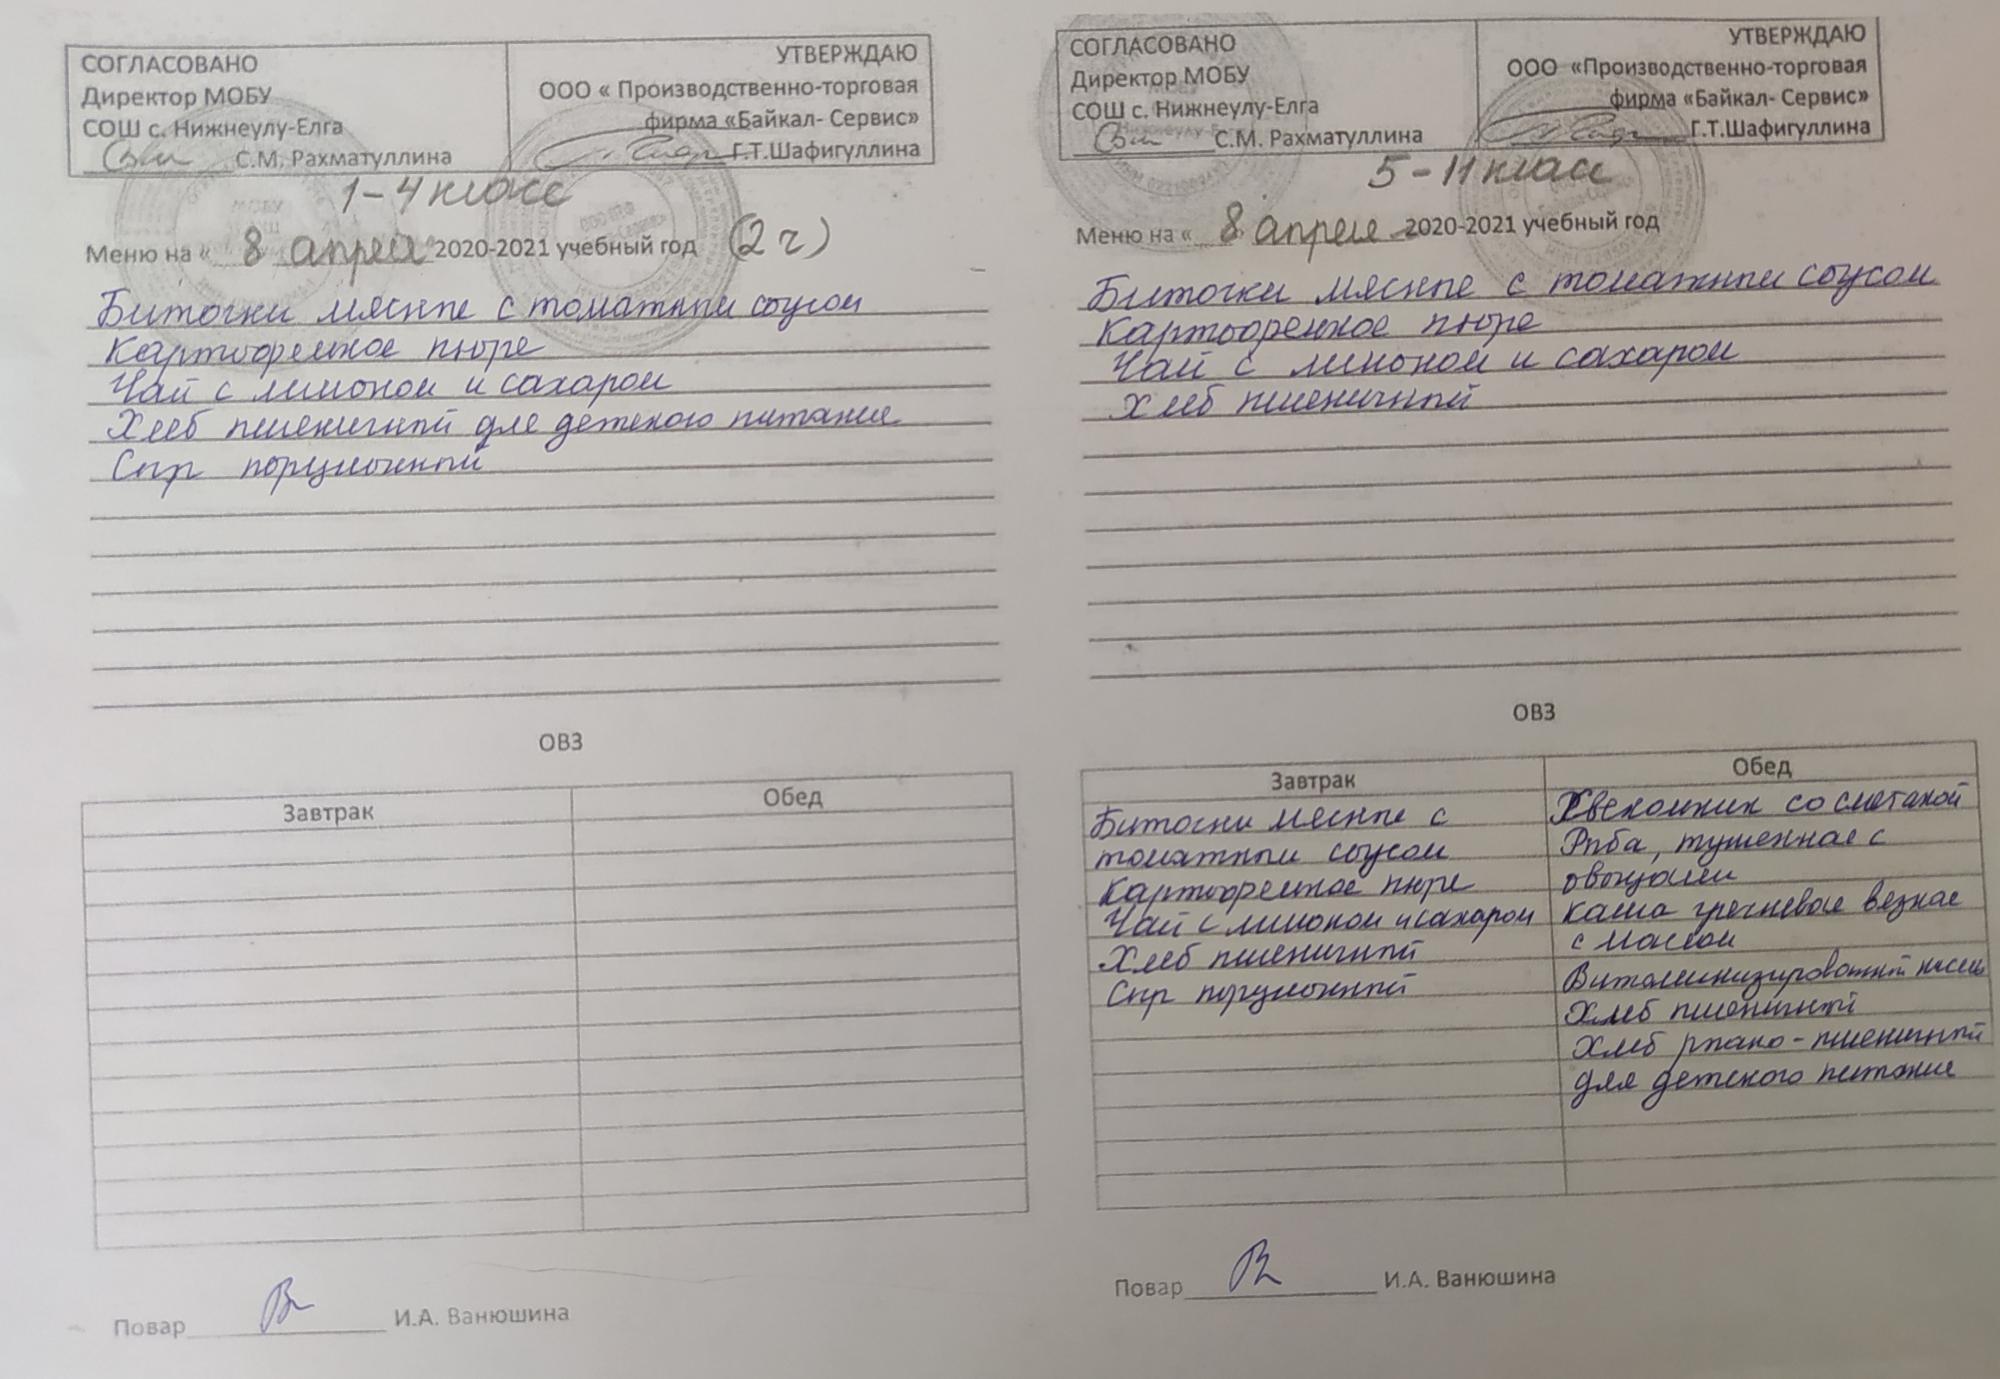 СОГЛАСОВАНО
Директор МОБУ
СОШ с. Нижнеулу-Елга
С.М. Рахматуллина
УТВЕРЖДАЮ
ООО « Производственно-торговая
фирма «Байкал- Сервис»
Г.Т.Шафигуллина
1-4 класс
Меню на « 8 апреля 2020-2021 учебный год (2 г)
Биточки мясные с томатным соусом
Картофельное пюре
Чай с лимоном и сахаром
Хлеб пшеничный для детского питания
Сыр порционный
ОВЗ
Завтрак Обед
Повар И.А. Ванюшина
СОГЛАСОВАНО
Директор МОБУ
СОШ с. Нижнеулу-Елга
С.М. Рахматуллина
УТВЕРЖДАЮ
ООО «Производственно-торговая
фирма «Байкал- Сервис»
Г.Т.Шафигуллина
5-11 класс
Меню на « 8 апреля 2020-2021 учебный год
Биточки мясные с томатным соусом
Картофельное пюре
Чай с лимоном и сахаром
Хлеб пшеничный
ОВЗ
Завтрак
Биточки мясные с
томатным соусом
Картофельное пюре
Чай с лимоном и сахаром
Хлеб пшеничный
Сыр порционный
Обед
Свекольник со сметаной
Рыба, тушенная с
овощами
Каша гречневая вязкая
с маслом
Витаминизированный кисель
Хлеб пшеничный
Хлеб ржано-пшеничный
для детского питания
Повар И.А. Ванюшина